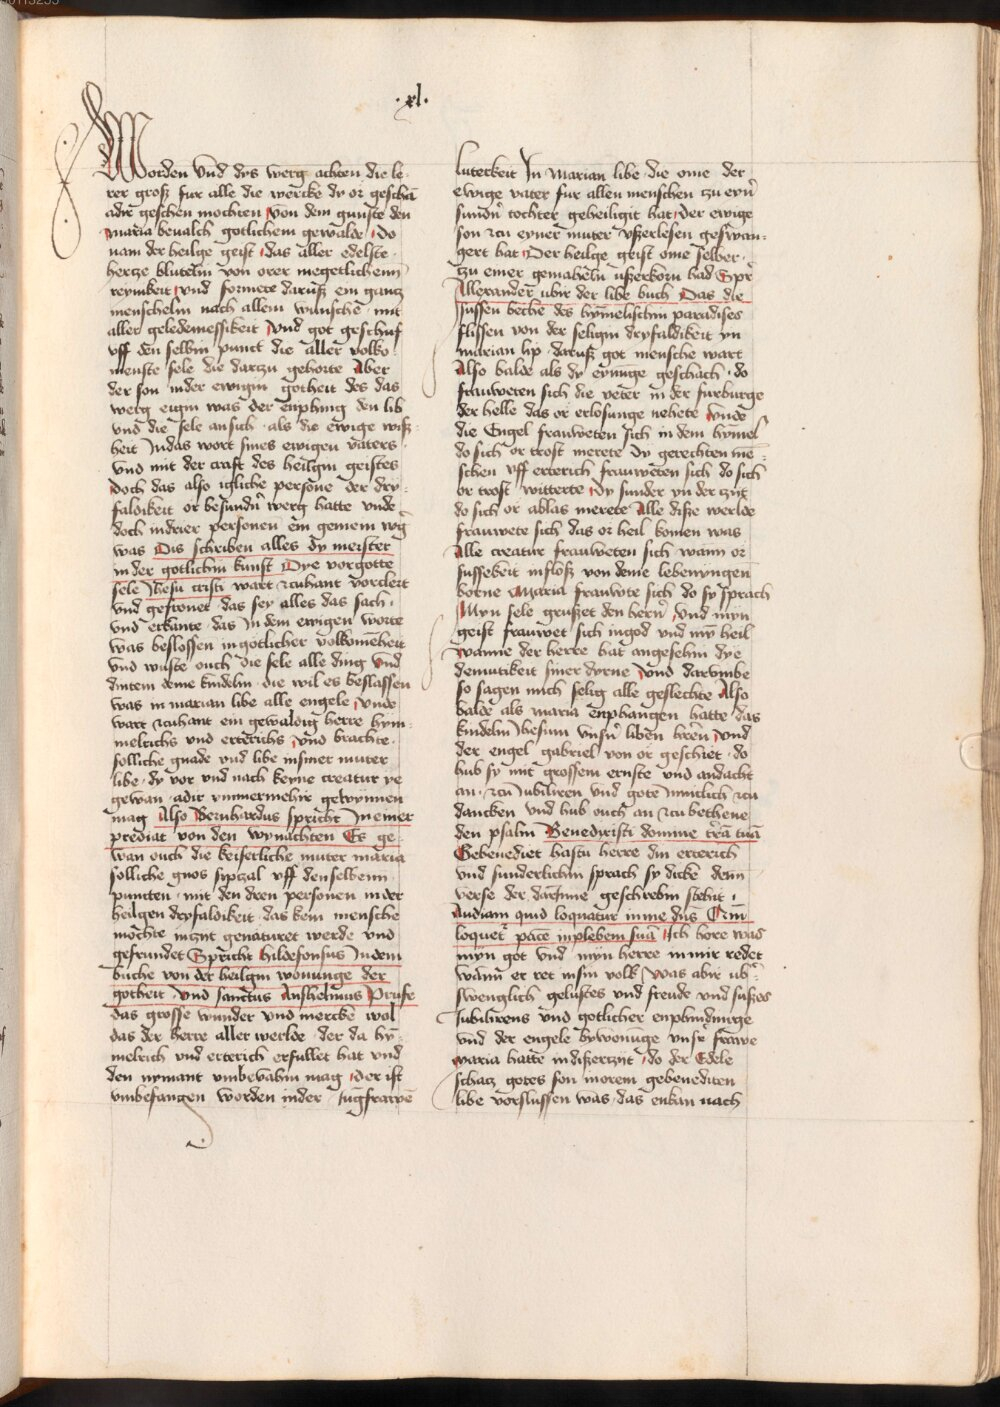 ·xl·
Worden Vnd dys werg achten die le-
rer groß fur alle die wercke dy or geschā
adir geschen mochten Von dem gunste den
maria beualch gotlichem gewalde Do
nam der heilge geist das aller edelste
hertze blutelin von orer megetlichenn
reynikeit vnd formete daruß ein gantz
menschelin nach allem wunsche mit
aller geledemessikeit Vnd got geschuf
vff den selbin punct die aller volko-
menste sele die dartzu gehorte Aber
der son inder ewigin gotheit des das
werg eigin was der enphing den lib
vnd die sele ansich als die ewige wiß-
heit Indas wort sines ewigen vaters
vnd mit der craft des heilgin geistes
Doch das also igliche persone der dry-
faldikeit or besundn̄ werg hatte vnde
doch indrier personen ein gemein w̄g
was Dis schriben alles dy meister
in der gotlichin kunst Dye vorgotte
sele Jhesu cristi wart zcuhant vorclert
vnd gefronet das sey alles das sach
vnd erkante das In dem ewigen worte
was beslossen in gotlicher volkomēheit
vnd wuste ouch die sele alle ding Vnd
dintem deme kindelin die wil es beslassen
was in marian libe alle engele Vnde
wart zcuhant ein gewaldig herre hym-
melrichs vnd erterichs vnd brachte
solliche gnade vnd libe insiner muter
libe dy vor vnd nach keyne creatur ye
gewan adir ymmermehir gewynnen
mag Also Bernhardus spricht In einer
prediat von den wynachten Es ge-
wan ouch die keiserliche muter maria
solliche gnos siptzal vff denselbenn
puncten mit den dren personen in der
heilgen dryfaldikeit das kein mensche
mochte in genaturet werde vnd
gefrundet Spricht hildefonsus In dem
buche von der heilgin wonunge der
gotheit Vnd sanctus Anshelmus Prufe
das grosse wunder vnd mercke wol
das der herre aller werlde der da hȳ-
melrich vnd erterich erfullet hat vnd
den nymant vmbevahin mag der ist
vmbefangen worden inder Jūgfrawē
luterkeit In Marian libe die ome der
ewige vater fur allen menschen zu eyn̄
sundn̄ tochter geheiligit hat der ewige
son zcu eyner muter vßerlesen geswan-
gert hat Der heilge geist ome selber
zu einer gemaheln vßerkorn had Spr̄
Allexander ubir der libe buch Das die
sussen beche des hymelischin paradises
flissen von der seligin dryfaldikeit yn
marian lip daruß got mensche wart
Also balde als dy eynunge geschach do
frauweten sich die veter in der furburge
der helle das or erlosunge nehete Vnde
die Engel frauweten sich in dem hȳmel
do sich or trost merete Dy gerechten mē-
schen vff erterich frauweten sich do sich
or trost witterte Dy sunder yn der zyt
do sich or ablas merete Alle diße werlde
frauwete sich das or heil komen was
Alle creatur frauweten sich wann or
sussekeit infloß von deme lebenyngen
borne Maria frauwte sich do sy sprach
Myn sele grußet den hern̄ Vnd myn
geist frauwet sich ingod vnd mȳ heil
wanne der herre hat angesehin dye
demutikeit siner dyrne Vnd darvmbe
so sagen mich selig alle geslechte Also
balde als maria enphangen hatte das
kindelin Jhesum vnsn̄ liben hrēn Vnd
der engel gabriel von or geschiet do
hub sy mit grossem ernste vnd andacht
an zcu Jubiliren vnd gote Jnniclich zcu
dancken vnd hub ouch an zcu bethene
den psalm Benedixisti domine tr̄ā tuā
Gebenediet hastu herre din erterich
vnd sunderlichin sprach sy dicke denn
verse der darinne geschrebin stehit
Audiam quid loquatur inme dn̄s Qm̄
loquet̄ pacē inplebem suā Ich hore was
myn got vnd myn herre in mir redet
wann er ret insin volk Was abir ub̄-
swenglich gelustes vnd freude vnd sußes
Jubilirens vnd gotlicher enphindunge
vnd der engele bywonūge vnsr̄ frawe
Maria hatte in dißerzyt do der Edele
schatz gotes son inorem gebenediten
libe vorslussen was das enkan nach